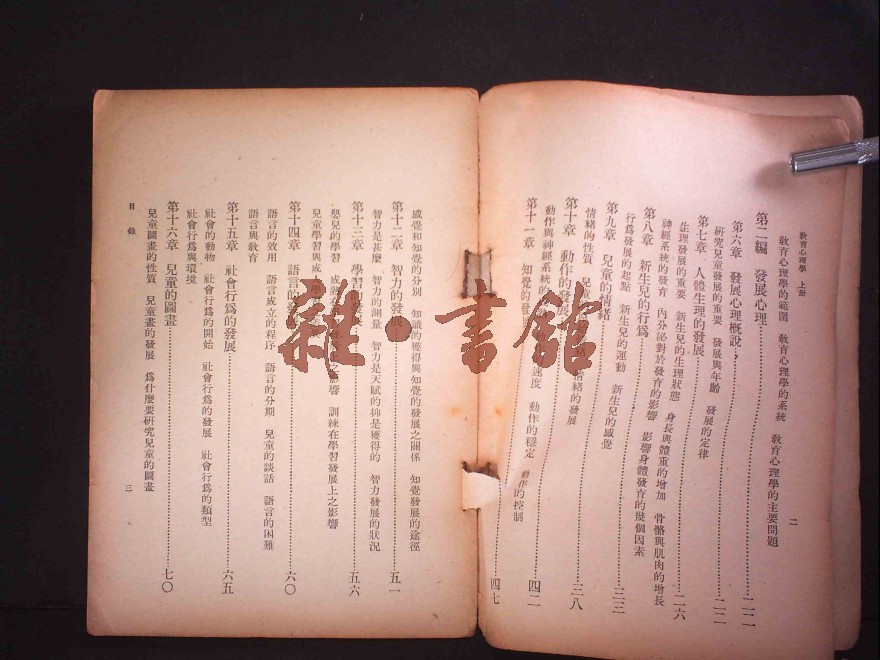 教育心理學 上册
二
教育心理學的範圍 教育心理學的系統 教育心理學的主要問題
第二編 發展心理 二二
第六章 發展心理概說 二二
研究兒童發展的重要 發展與年齡 發展的定律
第七章 人體生理的發展 二六
生理發展的重要 新生兒的生理狀態 身長與體重的增加 骨骼與肌肉的增長
神經系統的發育 內分泌對於發育的影響 影響身體發育的幾個因素
第八章 新生兒的行為 三三
行為發展的起點 新生兒的運動 新生兒的感覺
第九章 兒童的情緒 三八
情緒的性質 情緒的發展
第十章 動作的發展 四二
動作與神經系統的 速度 動作的穩定 動作的控制
第十一章 知覺的發 四七
感覺和知覺的分別 知識的獲得與知覺的發展之關係 知覺發展的途徑
第十二章 智力的發展 五一
智力是甚麼 智力的測量 智力是天賦的抑是獲得的 智力發展的狀況
第十三章 學習的發展 五六
嬰兒的學習 之影響 訓練在學習發展上之影響
兒童學習與成人學習
第十四章 語言的 六〇
語言的效用 語言成立的程序 語言的分期 兒童的談話 語言的困難
語言與教育
第十五章 社會行為的發展 六五
社會的動物 社會行為的開始 社會行為的發展 社會行為的類型
社會行為與環境
第十六章 兒童的圖畫 七〇
兒童圖畫的性質 兒童畫的發展 為什麼要研究兒童的圖畫
目錄
三
雜·書館